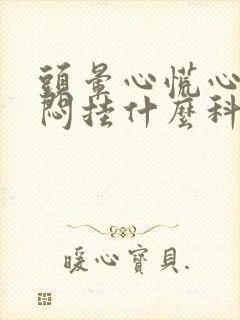 頭暈心慌心
悶挂什麽科
暖心寶貝.